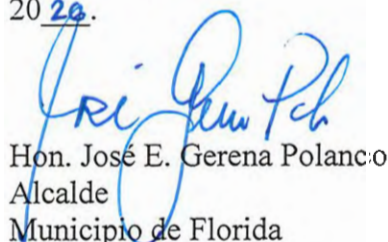 20 26.
Hon. José E. Gerena Polanco
Alcalde
Municipio de Florida